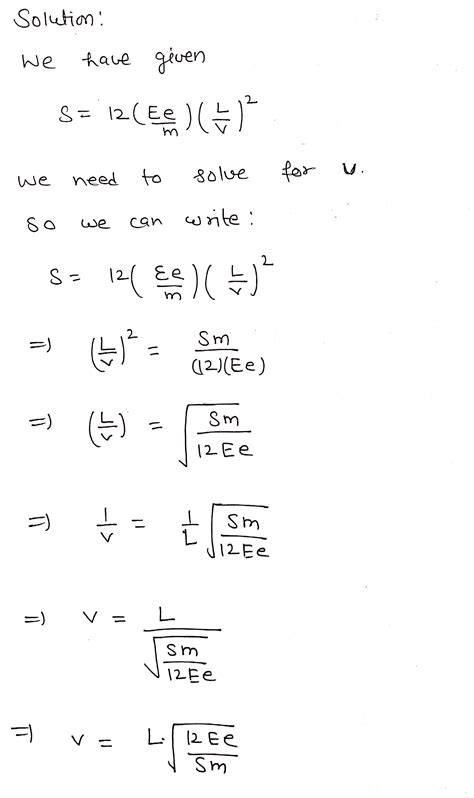 Solution:
We have given
S = 12(Ee/m)(L/v)²
We need to solve for v.
So we can write:
S = 12(Ee/m)(L/v)²
=) (L/v)² = Sm/(12)(Ee)
=) (L/v) = √(Sm/12Ee)
=) 1/v = 1/L √(Sm/12Ee)
=) v = L/√(Sm/12Ee)
=) v = L.√(12Ee/Sm)